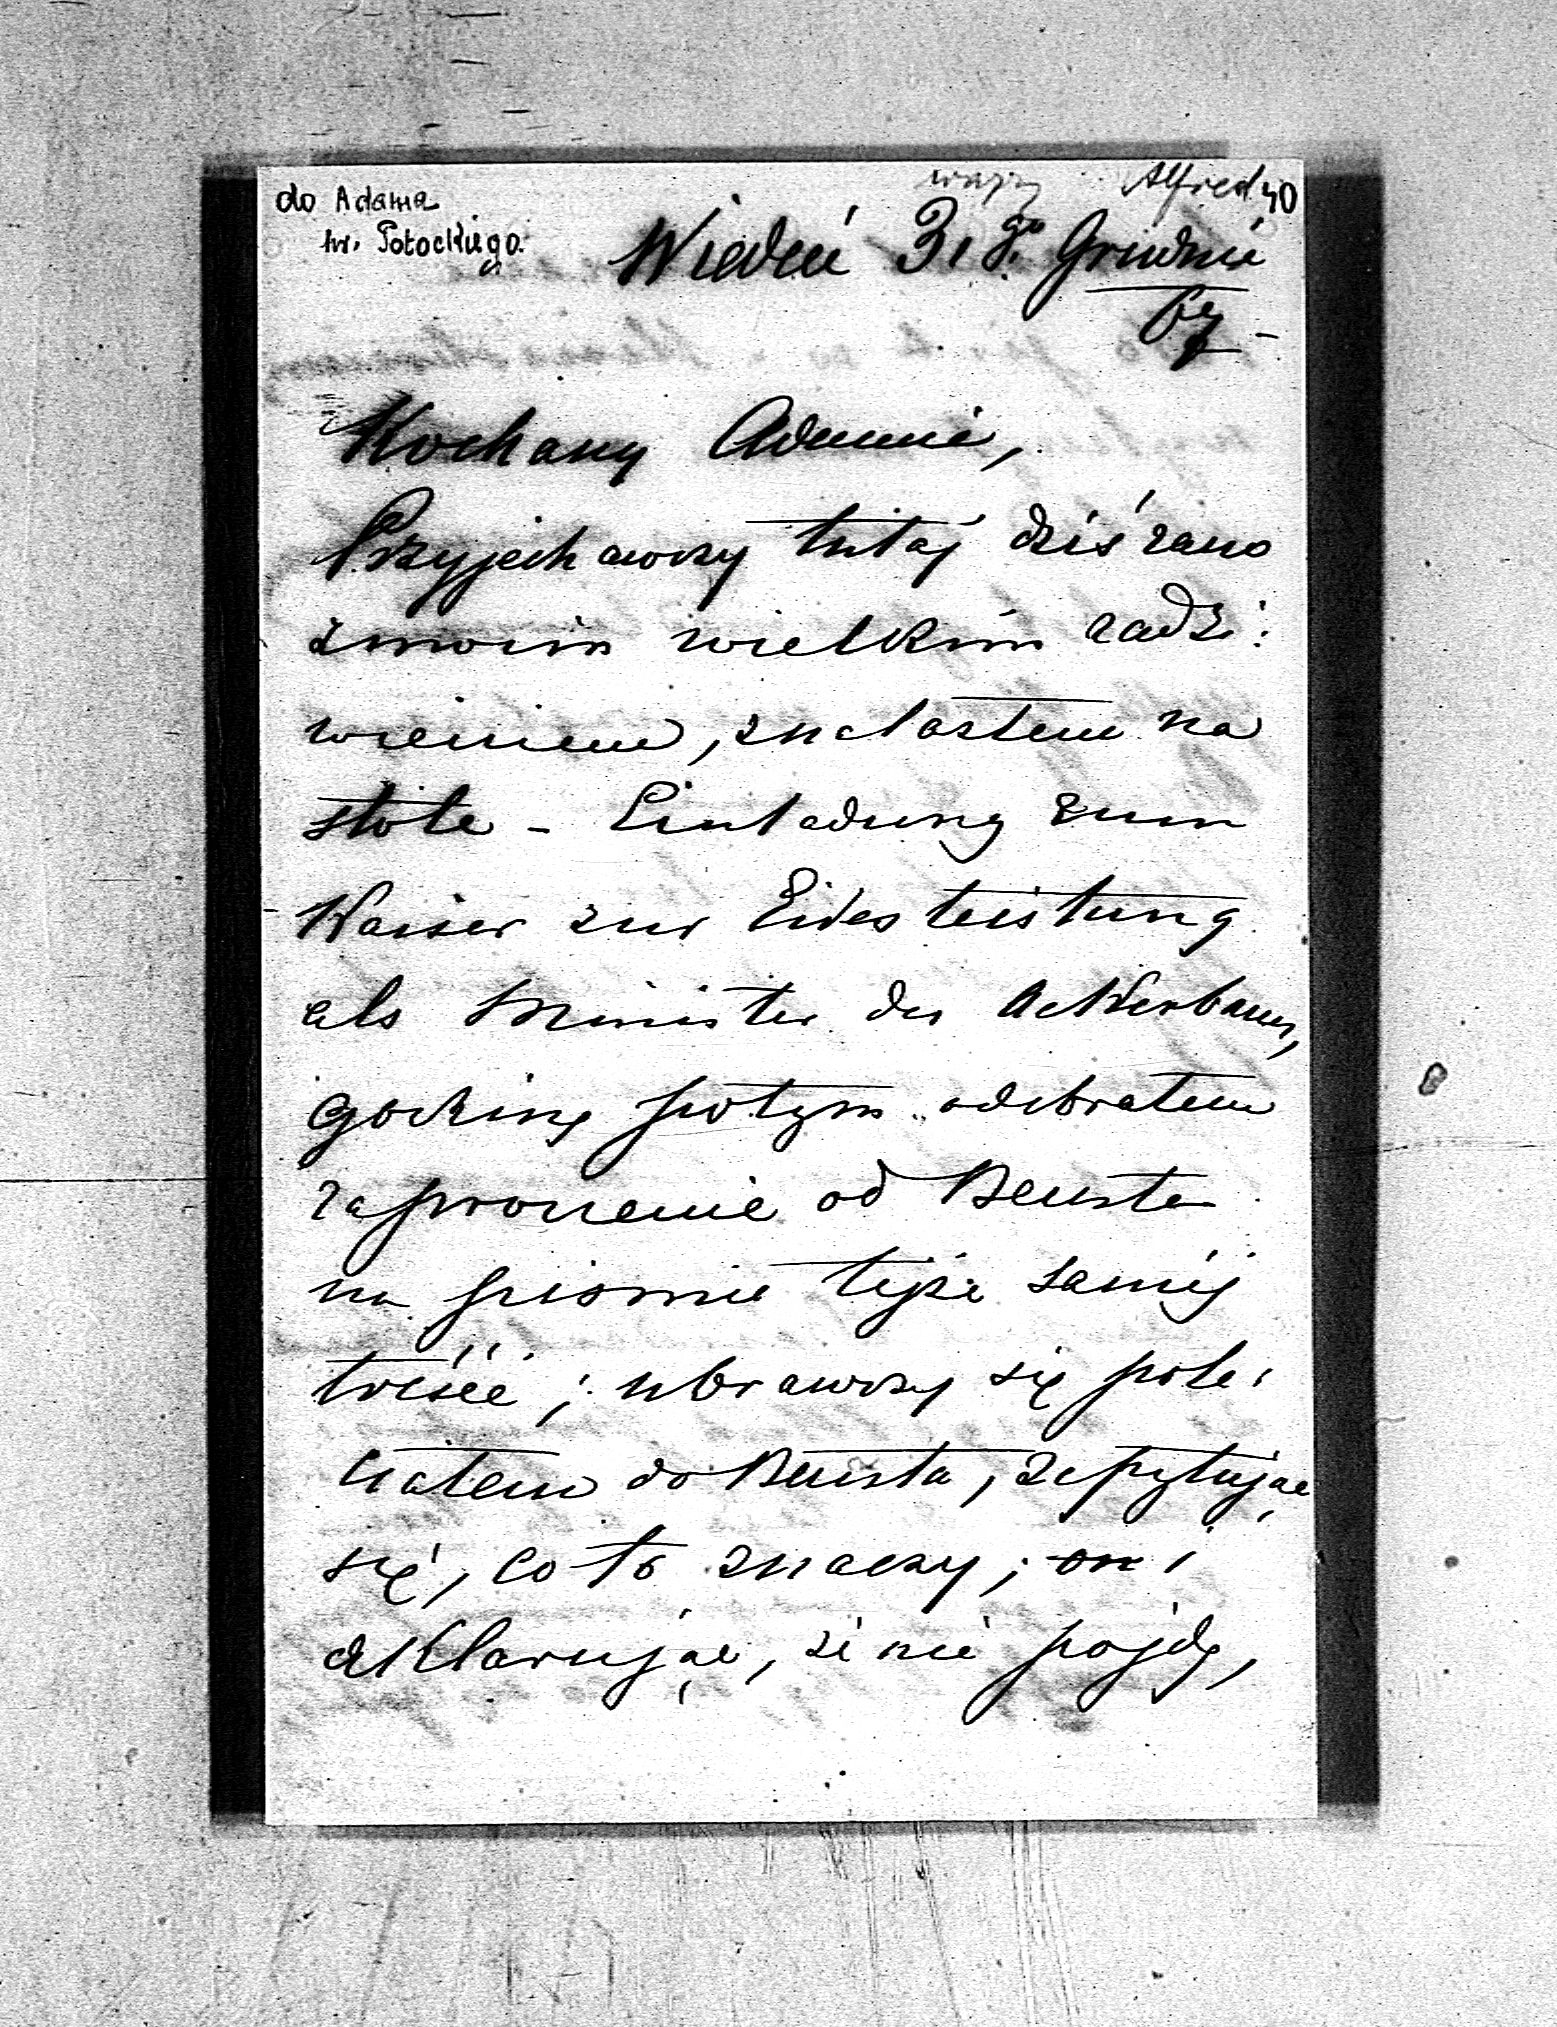 do Adama
hr. Potockiego.
Alfred 40
Wiedeń 31go Grudnia
67 -
Kochany Adamie,
Przyjechawszy tutaj dziś rano
z moim wielkim zadzi:
wieniem, znalazłem na
stole - Einladung zum
Kaiser zur Eidesleistung
als Minister des Ackerbaues,
godzinę potym odebrałem
zaproszenie od Beusta
na piśmie tejże saméj
treści; ubrawszy się pole:
ciałem do Beusta, zapytując
się, co to znaczy; on i
deklarując, że nie pójdę,